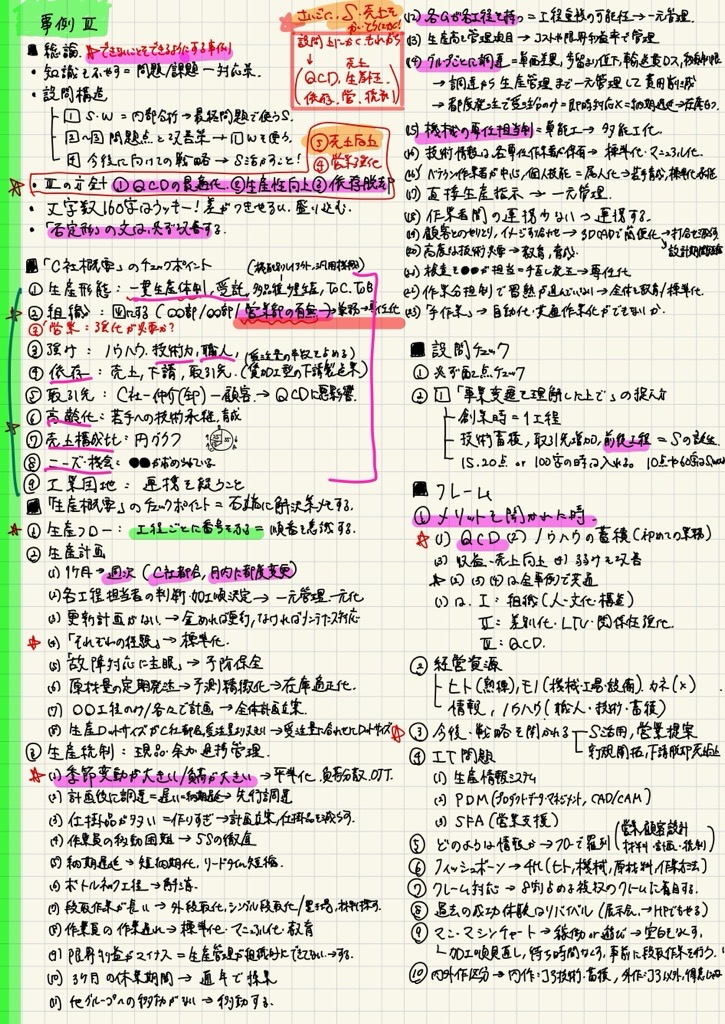 事例Ⅲ
さいごに、S・売上を
設問
↓ 売上
(QCD、生産性
依存、営、
■ 総論 ★できないことをできるようにする事例
・知識を ＝問題/課題→対応策
・設問構造
① S・W＝内部分析→最終問題で使うS。
②〜③問題点と改善策→①Wを使う。
④今後に向けての戦略→S活かすこと！
⑤売上向上
④営業強化
★・Ⅲの方針 ①QCDの最適化 ②生産性向上 ③依存脱却
・文字数160字はラッキー！差がつきやすい。盛り込む。
・「否定形」の文は必ず改善する。
■「C社概要」のチェックポイント
① 生産形態：一貫生産体制、受託、多品種少量、ToC、ToB
★② 組織：図にする（○○部/○○部/営業部の有無→兼務→専任化
②' 営業：強化が必要か？
③ 強み：ノウハウ、技術力、職人、
④ 依存：売上、下請、取引先。
⑤ 取引先：C社ー仲介(卸)ー顧客→QCDに悪影響
⑥ 高齢化：若手への技術承継、育成
★⑦ 売上構成比：円グラフ
⑧ ニーズ・機会：●●が求められている
⑨ 工業団地：連携を疑うこと
■「生産概要」のチェックポイント＝右脳に解決策メモする。
★① 生産フロー：工程ごとに番号をふる＝順番を意識する。
② 生産計画
(1) 1ヶ月→週次（C社都合、月内に都度変更）
(2) 各工程担当者の判断・加工順決定→一元管理・一元化
(3) 更新計画がない→
★(4)「それぞれの経験」→標準化。
(5)「故障対応に主眼」→予防保全
(6) 原材料の定期発注→予測精緻化→在庫適正化。
(7) ○○工程のみ/各々で計画→全体計画立案。
(8) 生産ロットサイズがC社都合、受注量より大きい→受注量に合わせたロットサイズ
③ 生産統制：現品・余力・進捗管理。
★(1) 季節変動が大きい/負荷が大きい→平準化、負荷分散、OJT。
(2) 計画後に調達＝遅い＝納期遅延→先行調達
(3) 仕掛品が多い＝作りすぎ→計画立案、仕掛品を減らす。
(4) 作業員の移動困難→5Sの徹底
(5) 納期遅延→短納期化、リードタイム短縮。
(6) ボトルネック工程→解消。
(7) 段取作業が長い→外段取化、シングル段取化/
(8) 作業員の作業遅れ→標準化・マニュアル化・教育
(9) 限界利益がマイナス＝生産管理が組織的にできてない→する。
(10) 3ヶ月の休業期間→通年で操業
(11) 他グループへの移動がない→移動する。
(12) 各Gが各工程を持つ＝工程重複の可能性→一元管理。
(13) 生産高を管理項目→コストや限界利益率で管理。
(14) グループごとに調達＝単価差異、歩留まり低下、輸送費ロス、
→調達から生産管理まで一元管理して費用削減
→都度発注で受注のみ＝即時対応×＝納期遅延→在庫もつ。
(15) 機械の専任担当制＝単能工→多能工化。
(16) 技術情報は、各専任作業者が保有→標準化・マニュアル化。
(16) ベテラン作業者が中心/個人技能＝属人化→若手育成、標準化
(17) 直接生産指示→一元管理。
(18) 作業者間の連携少ない→連携する。
(19) 顧客とのやりとり、イメージすり合わせ→3DCADで簡便化→
設計期間短縮
(20) 高度な技術必要→教育、育成。
(21) 検査を●●が担当＝手直し発生→専任化
(22) 作業分担制で習熟が進んでいない→全体を教育/標準化。
(23)「手作業」→自動化・共通作業化ができないか。
■ 設問チェック
① 必ず配点チェック
② ①「事業変遷を理解した上で」の捉え方
創業時＝1工程
技術蓄積、取引先増加、前後工程＝Sの誕生
15、20点 or 100字の時は入れる。
■ フレーム
① メリットを聞かれた時。
★(1) QCD (2) ノウハウの蓄積（初めての業務）
(3) 収益・売上向上 (4) 弱みを改善
★(2)(3)(4)は全事例で共通
(1)は、Ⅰ：組織（人・文化・構造）
Ⅱ：差別化・LTV・関係性強化
Ⅲ：QCD。
② 経営資源
ヒト(熟練)、モノ(機械・工場・設備)、カネ(×)
情報、ノウハウ（職人・技術・蓄積）
★③ 今後・戦略を聞かれる S活用、営業提案
新規開拓、下請脱却、売上
④ IT問題
(1) 生産情報システム
(2) PDM(プロダクトデータマネジメント、CAD/CAM)
(3) SFA（営業支援）
⑤ どのような情報か→フローで羅列（営業・顧客・設計
材料・計画・統制）
⑥ フィッシュボーン→4化(ヒト、機械、原材料、作業方法)
⑦ クレーム対応→8割占める後段のクレームに着目する。
⑧ 過去の成功体験はリバイバル（展示会→HPでもやる）
⑨ マン・マシンチャート→稼働 or 遊び→空白をなくす。
加工順見直し、待ち時間なくす、事前に段取作業を行う。
⑩ 内外作区分→内作：コア技術・蓄積、外作：コア以外、